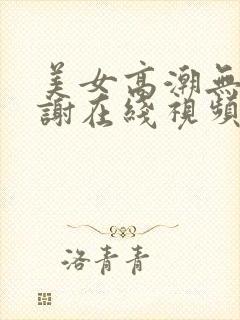 美女高潮無
謝在綫視頻
洛青青